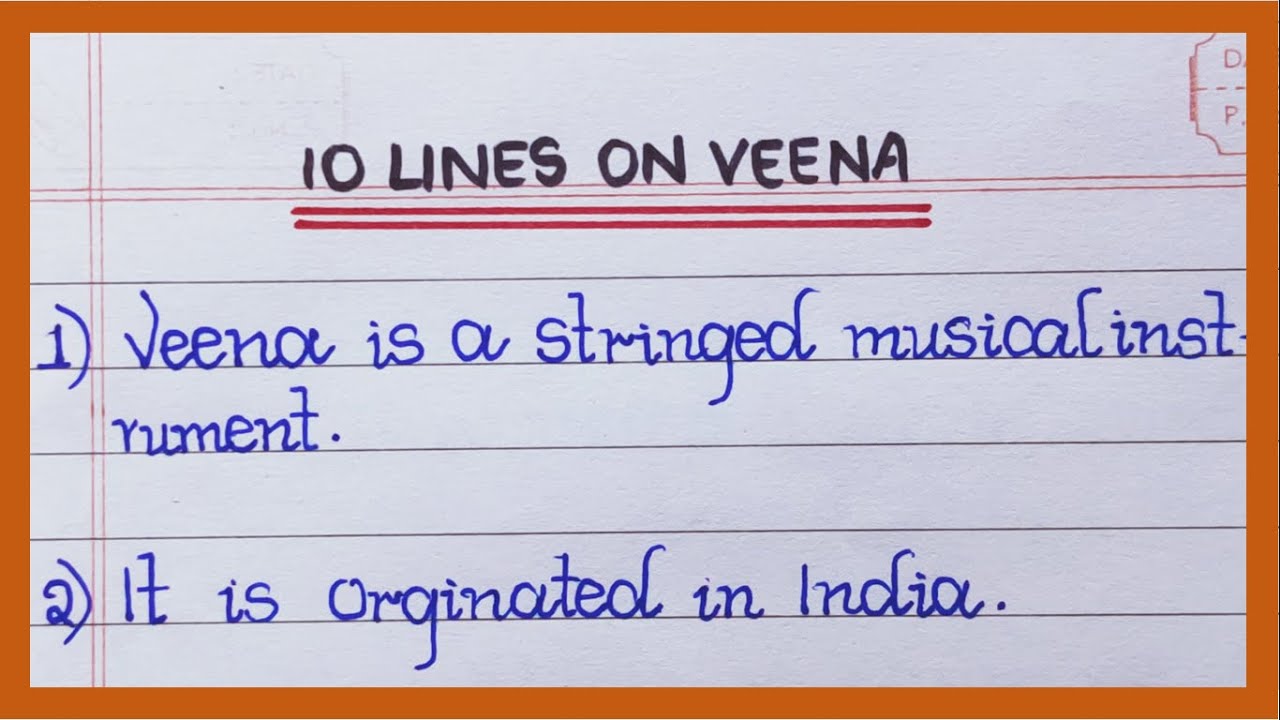 DA
P.
10 LINES ON VEENA
1) Veena is a stringed musical inst-
rument.
2) It is orginated in India.